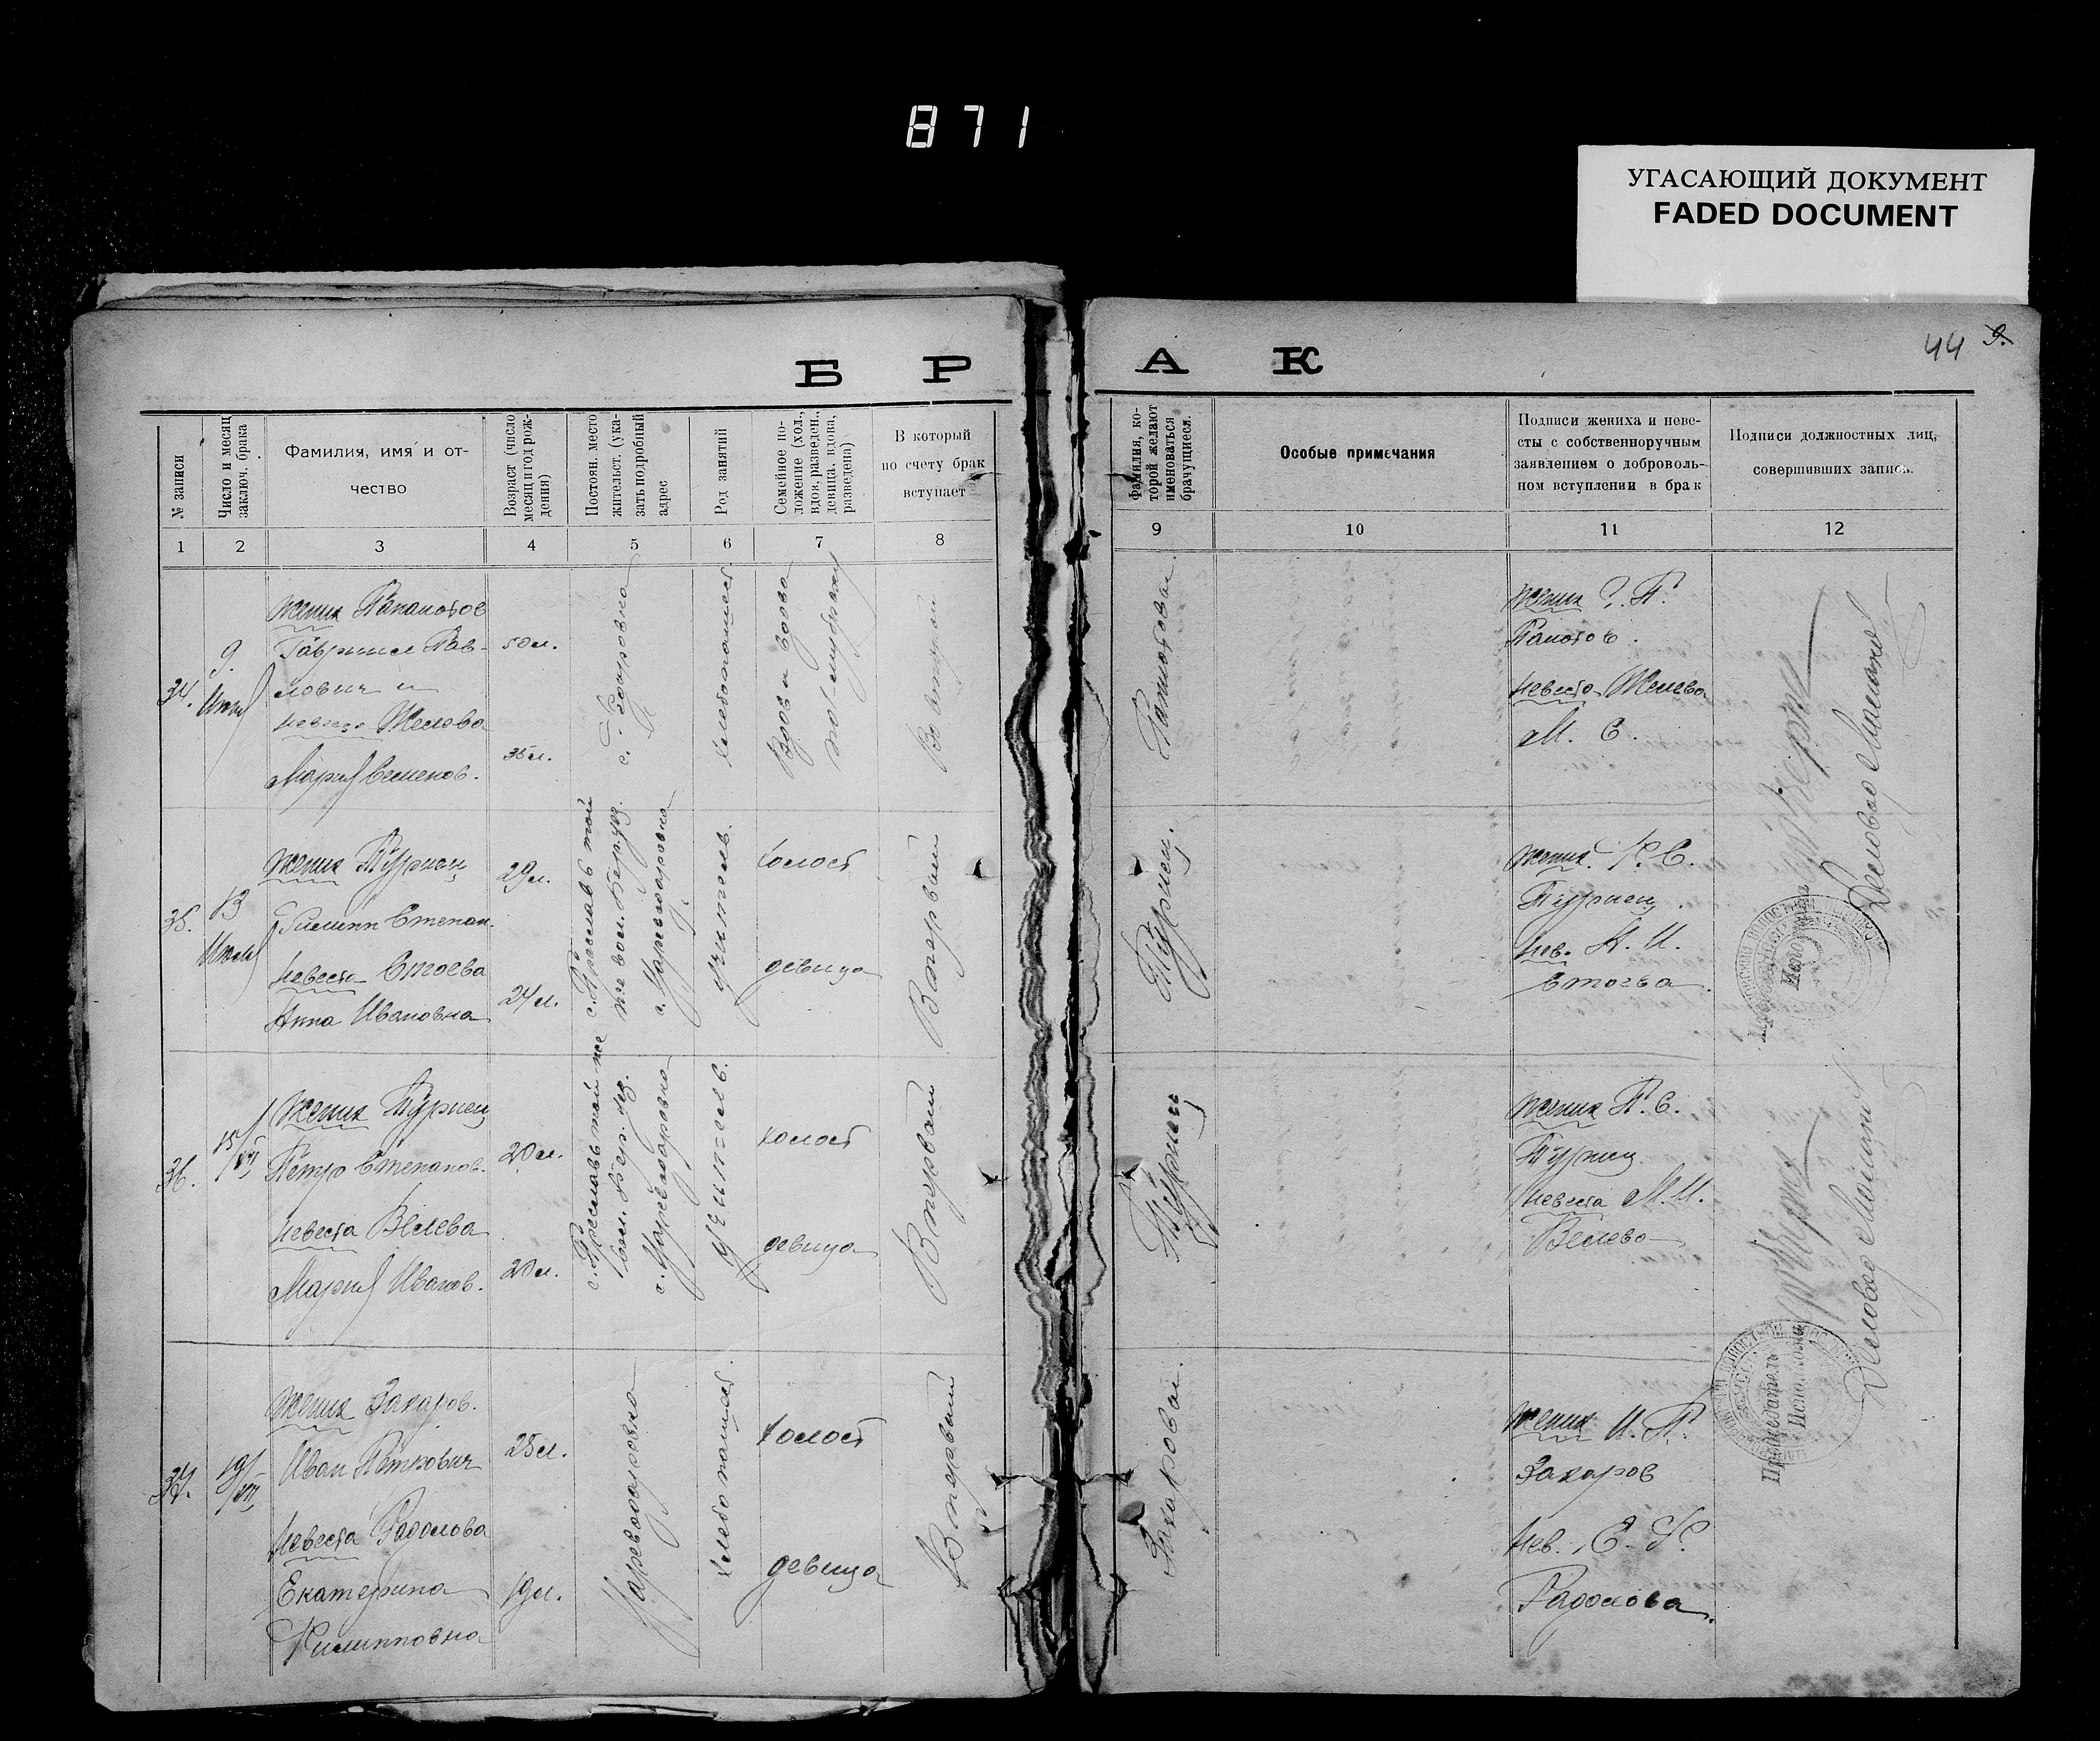 871
УГАСАЮЩИЙ ДОКУМЕНТ
FADED DOCUMENT
44 9.
Б Р А К
№ записи
Число и месяц
заключ. брака
Фамилия, имя и от-
чество
Возраст (число
месяц и год рож-
дения)
Постоян. место
жительст. (ука-
зать подробный
адрес
Род занятий
Семейное по-
ложение (хол.,
вдов. разведен.,
девица, вдова,
разведена)
В который
по счету брак
вступает
Фамилия, ко-
торой желают
именоваться
брачущиеся.
Особые примечания
Подписи жениха и неве-
сты с собственноручным
заявлением о доброволь-
ном вступлении в брак
Подписи должностных лиц,
совершивших запись.
1 2 3 4 5 6 7 8 9 10 11 12
34.
9.
Июля
жених
Гавриил Пав-
лович и
невеста Желева
Мария Семенов.
50 л.
35 л.
хлебопашест.
Вдов и вдова
Во второй
жених Г. П.
невеста Желева
М. С.
35.
13
Июля
жених Турнец
Филипп Степан.
невеста Стоева
Анна Ивановна
29 л.
24 л.
с. Преслав той
же вол. Бер. уез.
с. Царевдаровка
учитель.
холост
девица
В первый
Турнец.
жених. Ф. С.
Турнец.
нев. А. И.
Стоева.
36.
15/VII
жених Турнец
Петр Степанов.
невеста Велева
Мария Иванов.
20 л.
20 л.
с. Преслав той же
вол. Бер. уез.
с. Царевдаровка
учитель.
холост
девица
В первый
Турнец
жених П. С.
Турнец.
невеста М. И.
Велева
37.
19/VII
жених Захаров.
Иван Петкович
невеста Радолова
Екатерина
Филипповна
25 л.
19 л.
Царевдаровка
хлебопашест.
холост
девица
В первый
Захаровы.
жених И. П.
Захаров
нев. Е. Ф.
Радолова.
Председатель
Исполкома
Деловод
Председатель
Исполкома
Деловод